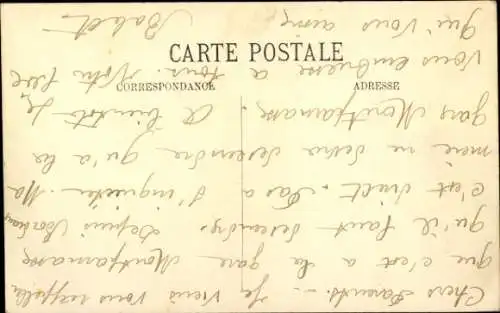 CARTE POSTALE
CORRESPONDANCE
ADRESSE
Chers Parents. - Je viens vous rappeler
que c'est à la gare Montparnasse
qu'il faut descendre. Depuis Bordeaux
c'est direct. Pas à s'inquiéter. Ma
mère ne devra descendre qu'à la
gare Montparnasse. A bientôt Je
vous embrasse à tous. Votre fille
qui vous aime